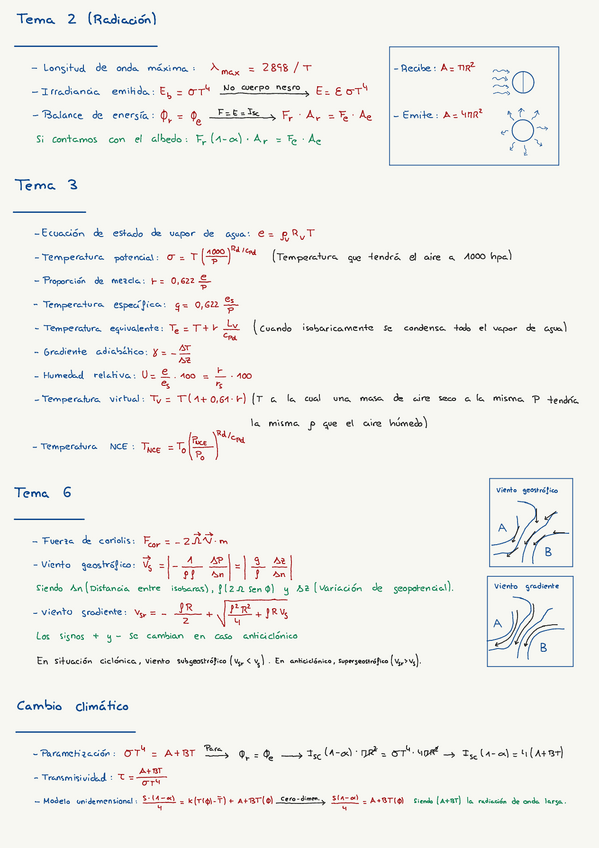 Tema 2 (Radiación)
- Longitud de onda máxima: λmax = 2898 / T
- Irradiancia emitida: E_b = σT⁴ —No cuerpo negro→ E = ε σT⁴
- Balance de energía: Φr = Φe —F=E=Isc→ Fr · Ar = Fe · Ae
Si contamos con el albedo: Fr (1-α) · Ar = Fe · Ae
- Recibe: A = πR²
- Emite: A = 4πR²
Tema 3
- Ecuación de estado de vapor de agua: e = ρv Rv T
- Temperatura potencial: σ = T (1000/P)^Rd/cpd (Temperatura que tendrá el aire a 1000 hpa)
- Proporción de mezcla: r = 0,622 e/P
- Temperatura específica: q = 0,622 es/P
- Temperatura equivalente: Te = T + r Lv/cpd (cuando isobaricamente se condensa todo el vapor de agua)
- Gradiente adiabático: γ = - ΔT/ΔZ
- Humedad relativa: U = e/es · 100 = r/rs · 100
- Temperatura virtual: Tv = T(1+0,61·r) (T a la cual una masa de aire seco a la misma P tendría
la misma ρ que el aire húmedo)
- Temperatura NCE: T_NCE = T₀ (P_NCE/P₀)^Rd/cpd
Tema 6
- Fuerza de coriolis: Fcor = - 2 Ω⃗ V⃗ · m
- Viento geostrófico: V⃗g = |- 1/ρf ΔP/Δn| = |g/f Δz/Δn|
Siendo Δn (Distancia entre isobaras), f (2 Ω sen Φ) y Δz (Variación de geopotencial).
- Viento gradiente: Vgr = - fR/2 + √(f²R²/4 + fRVg)
Los signos + y - se cambian en caso anticiclónico
En situación ciclónica, viento subgeostrófico (Vgr < Vg). En anticiclónico, supergeostrófico (Vgr > Vg).
Viento geostrófico
A
B
Viento gradiente
A
B
Cambio climático
- Parametrización: σT⁴ = A+BT —Para→ Φr = Φe → Isc (1-α) · πR² = σT⁴ · 4πR² → Isc (1-α) = 4(A+BT)
- Transmisividad: τ = A+BT/σT⁴
- Modelo unidemensional: S·(1-α)/4 = K(T(Φ)-T̄) + A+BT(Φ) —Cero-dimen.→ S(1-α)/4 = A+BT(Φ) Siendo (A+BT) la radiación de onda larga.